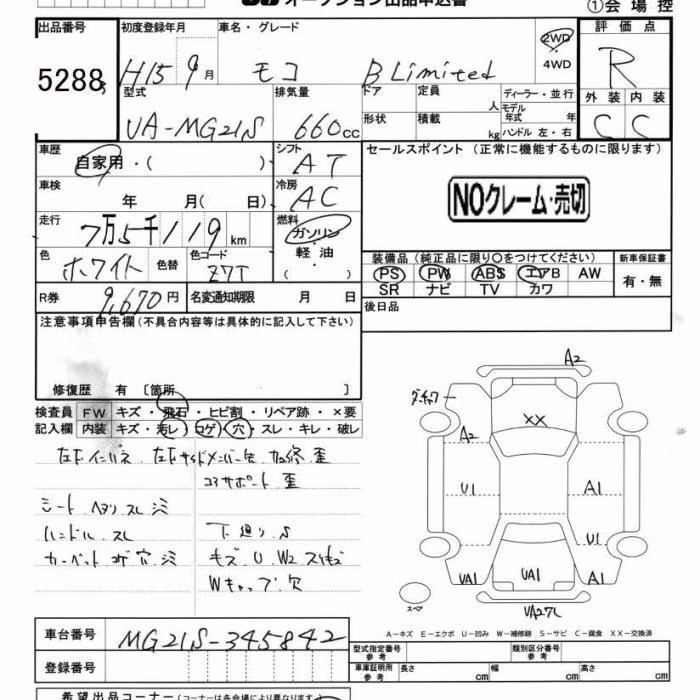 オークション出品申込書
①会場控
出品番号 初度登録年月 車名・グレード 評価点
5288 H15 9月 モコ B Limited 2WD 4WD R
型式 排気量 ドア 定員 人 ディーラー・並行 外装 内装
UA-MG21S 660cc 形状 積載 kg モデル年式 年 ハンドル 左・右 C C
車歴 自家用・( ) シフト AT セールスポイント (正常に機能するものに限ります)
車検 年 月( 日) 冷房 AC NOクレーム・売切
走行 7万5千119km 燃料 ガソリン・軽油・( )
色 ホワイト 色替 色コード Z7T 装備品 (純正品に限り○をつけてください) 新車保証書
PS PW ABS エアB AW 有・無
SR ナビ TV カワ
R券 9,670円 名変通知期限 月 日 後日品
注意事項申告欄(不具合内容等は具体的に記入して下さい)
修復歴 有 〔箇所 〕
検査員 FW キズ・飛石・ヒビ割・リペア跡・×要
記入欄 内装 キズ・汚レ・コゲ・穴・スレ・キレ・破レ
左F インパネ 左Fサイドメンバー 歪
コアサポート 歪
シート ヘタリ スレ シミ
ハンドル スレ 下廻り S
カーペット コゲ 穴 シミ キズ U W2 スリキズ
Wキャップ欠
A2
XX
A2
U1 A1
U1
UA1 UA1 A1
スペア
A-キズ E-エクボ U-凹み W-補修跡 S-サビ C-腐食 XX-交換済
車台番号 MG21S-345842 型式指定番号 参考 類別区分番号 参考
登録番号 車庫証明用 参考 長さ cm 幅 cm 高さ cm
希望出品コーナー